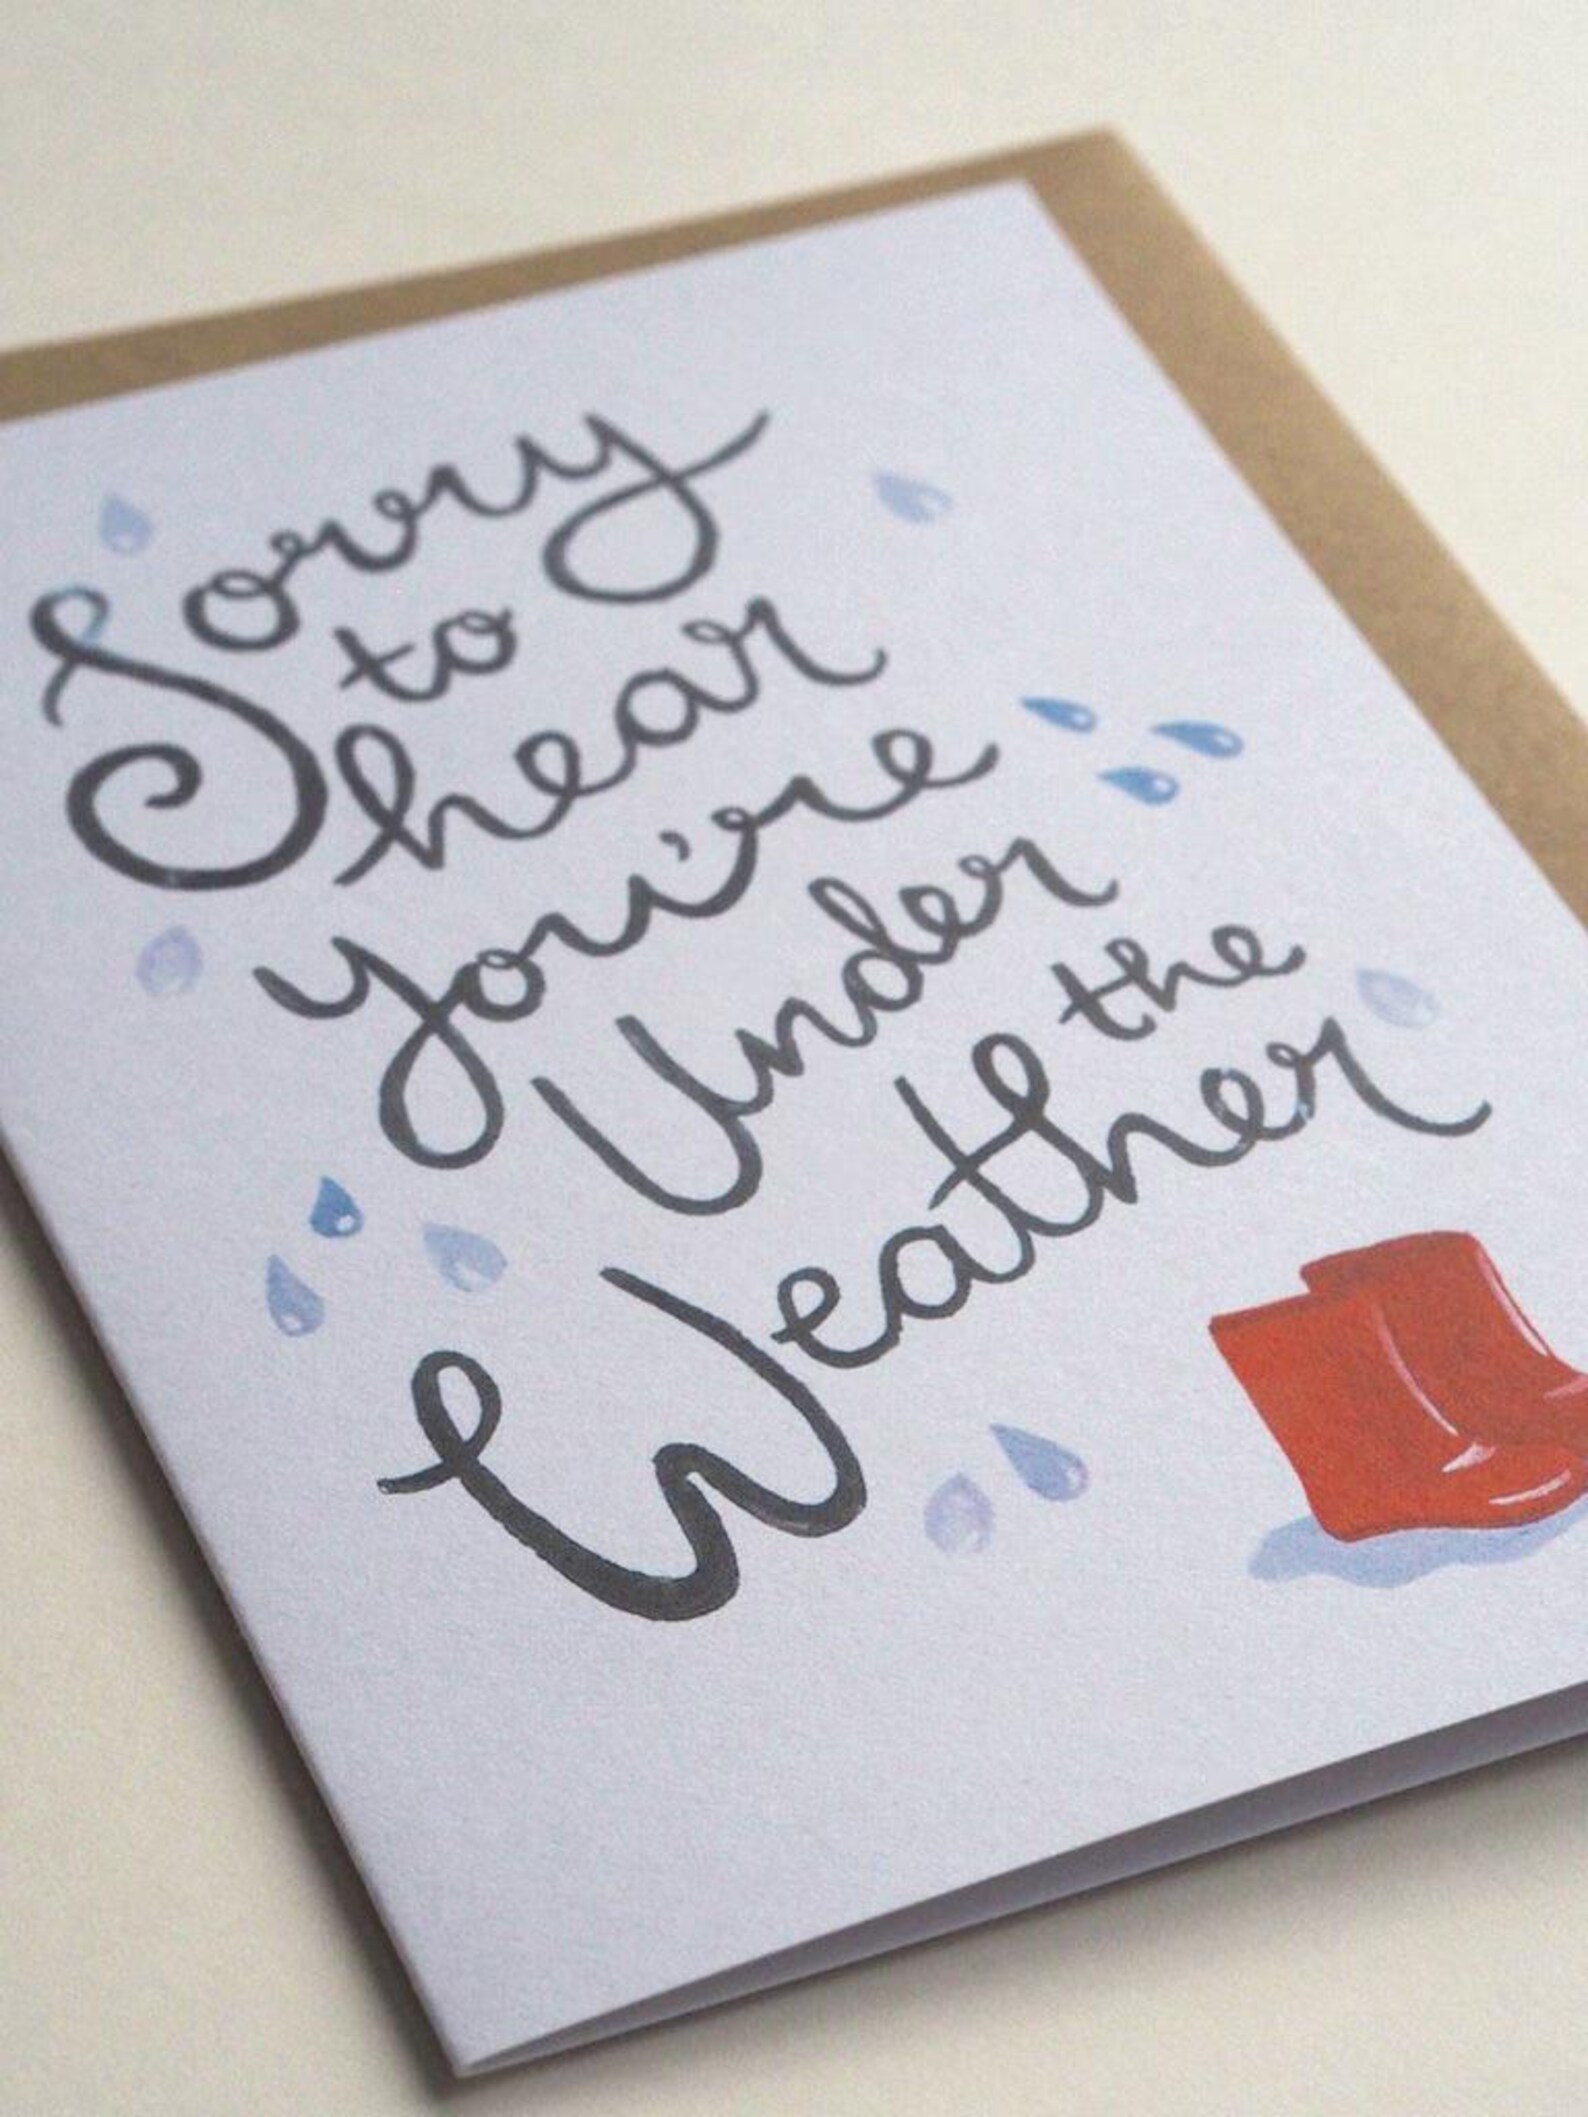 Sorry
to
hear
you're
Under
the
Weather